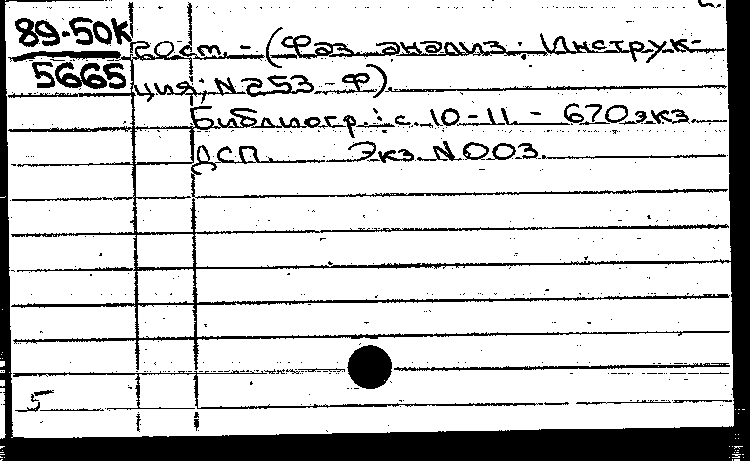 89-50к
5665
20 см. - (Фаз. анализ; Инструк-
ция; N 253-Ф).
Библиогр.: с. 10-11. - 670 экз.
ДСП. Экз. N 003.
5